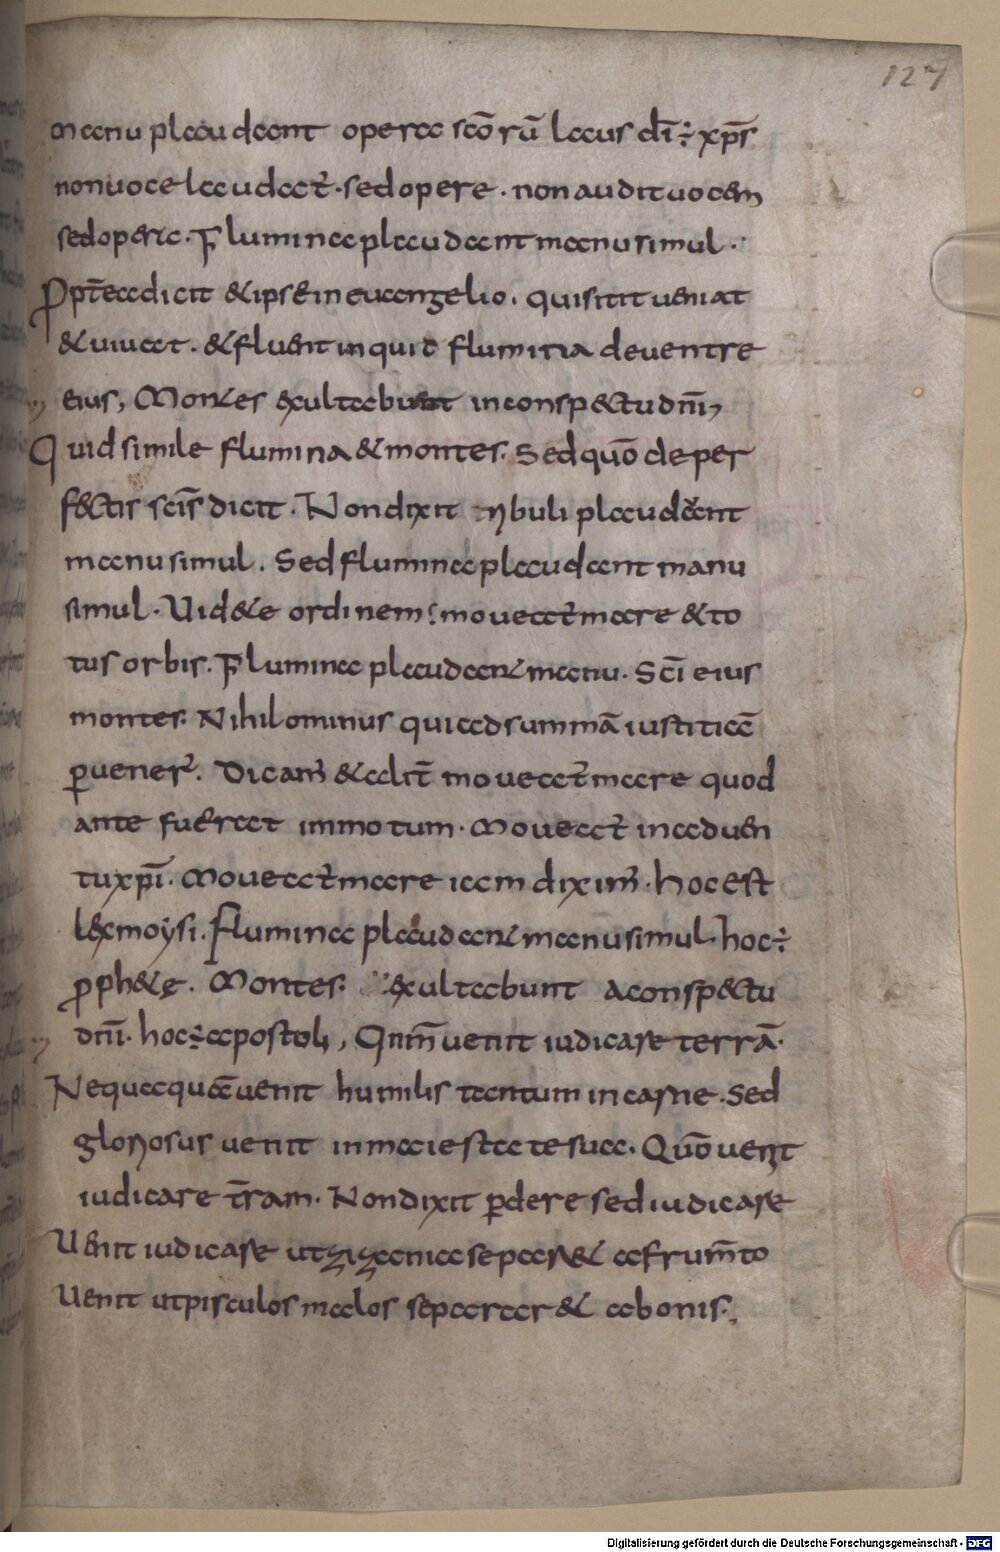 127
manu plaudant opera scōrū laus dī ÷ xp̄s
non uoce laudat̄ · sed opere · non audit uocem
sed operis · Flumina plaudent manu simul ·
Propt̄ea dicit & ipse in euangelio · qui sitit ueniat
& uiuat · & fluent inquid flumina de uentre
eius, Montes exultabunt in conspectu dn̄i,
Quid simile flumina & montes · Sed quō de per
fectis scīs dicit · Non dixit riuuli plaudent
manu simul · Sed flumina plaudent manu
simul · Uidete ordinem; moueat̄ mare & to
tus orbis · Flumina plaudent manu · Scī eius
montes · Nihilominus qui ad summā iustitiā
ꝑuener̄ · Dicam̄ & alit̄ moueat̄ mare quod
ante fuerat immotum · Moueat̄ in aduen
tu xpī · Moueat̄ mare iam dixim̄ · hoc est
lex moysi · Flumina plaudent manu simul · hoc ÷
prophetę · Montes exultabunt a conspectu
dn̄i · hoc ÷ apostoli, Qn̄m uenit iudicare terrā ·
Nequaquā uenit humilis tantum in carne · Sed
gloriosus uenit in maiestate sua · Quō uenit
iudicare t̄ram · Non dixit ꝑdere sed iudicare
Uenit iudicare ut zizania separ& a frum̄to
Uenit ut pisculos malos separar& a bonis ·
Digitalisierung gefördert durch die Deutsche Forschungsgemeinschaft - DFG